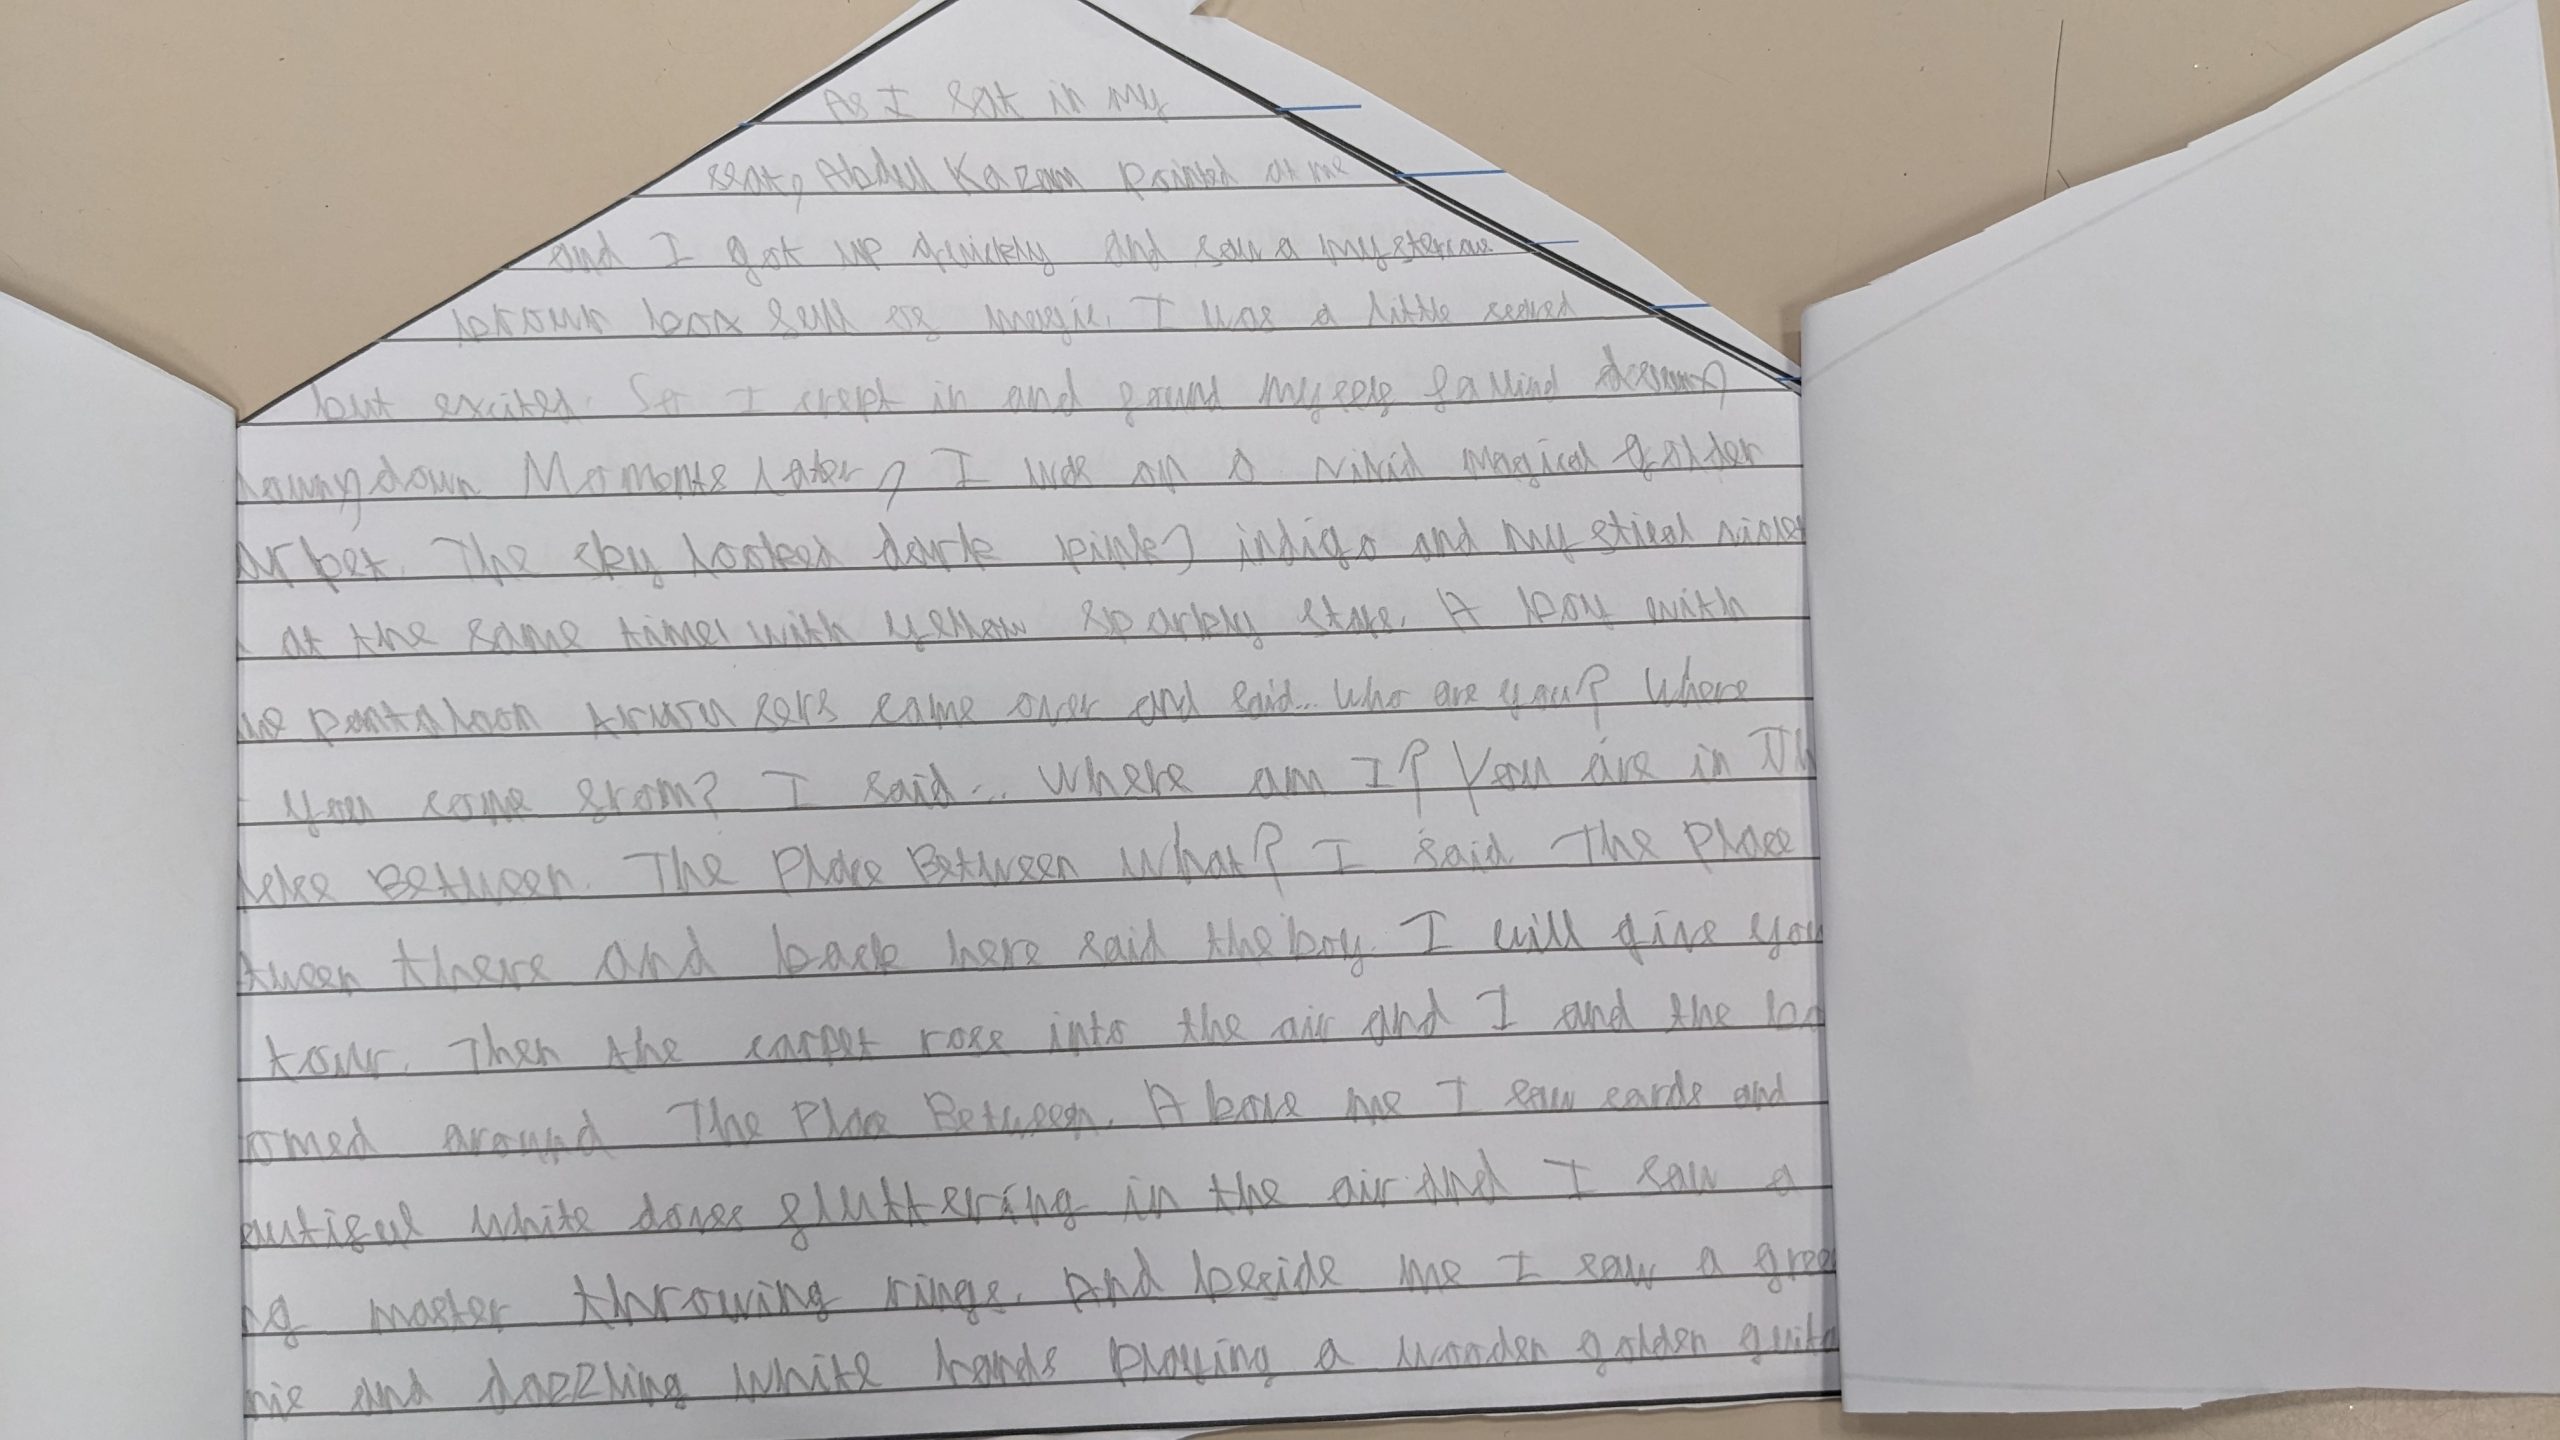 As I sat in my
seat, Abdul Kazam pointed at me
and I got up quickly and saw a
brown box full of magic. I was a little scared
but excited. So I crept in and found myself fallind
down Moments later, I was on a magical golden
The sky looked dark pink, indigo and mystical violet
at the same time with yellow sparkly stars. A boy with
pantaloon came over and said... who are you? Where
you come from? I said... Where am I? You are in Th
Between. The Place Between what? I said. The Place
tween there and back here said the boy. I will give you
tour. Then the carpet rose into the air and I and the bo
omed around The Place Between. Above me I saw cards and
eautiful white doves fluttering in the air and I saw a
ng master throwing rings. And beside me I saw a gree
nie and dazzling white hands playing a wooden golden guita